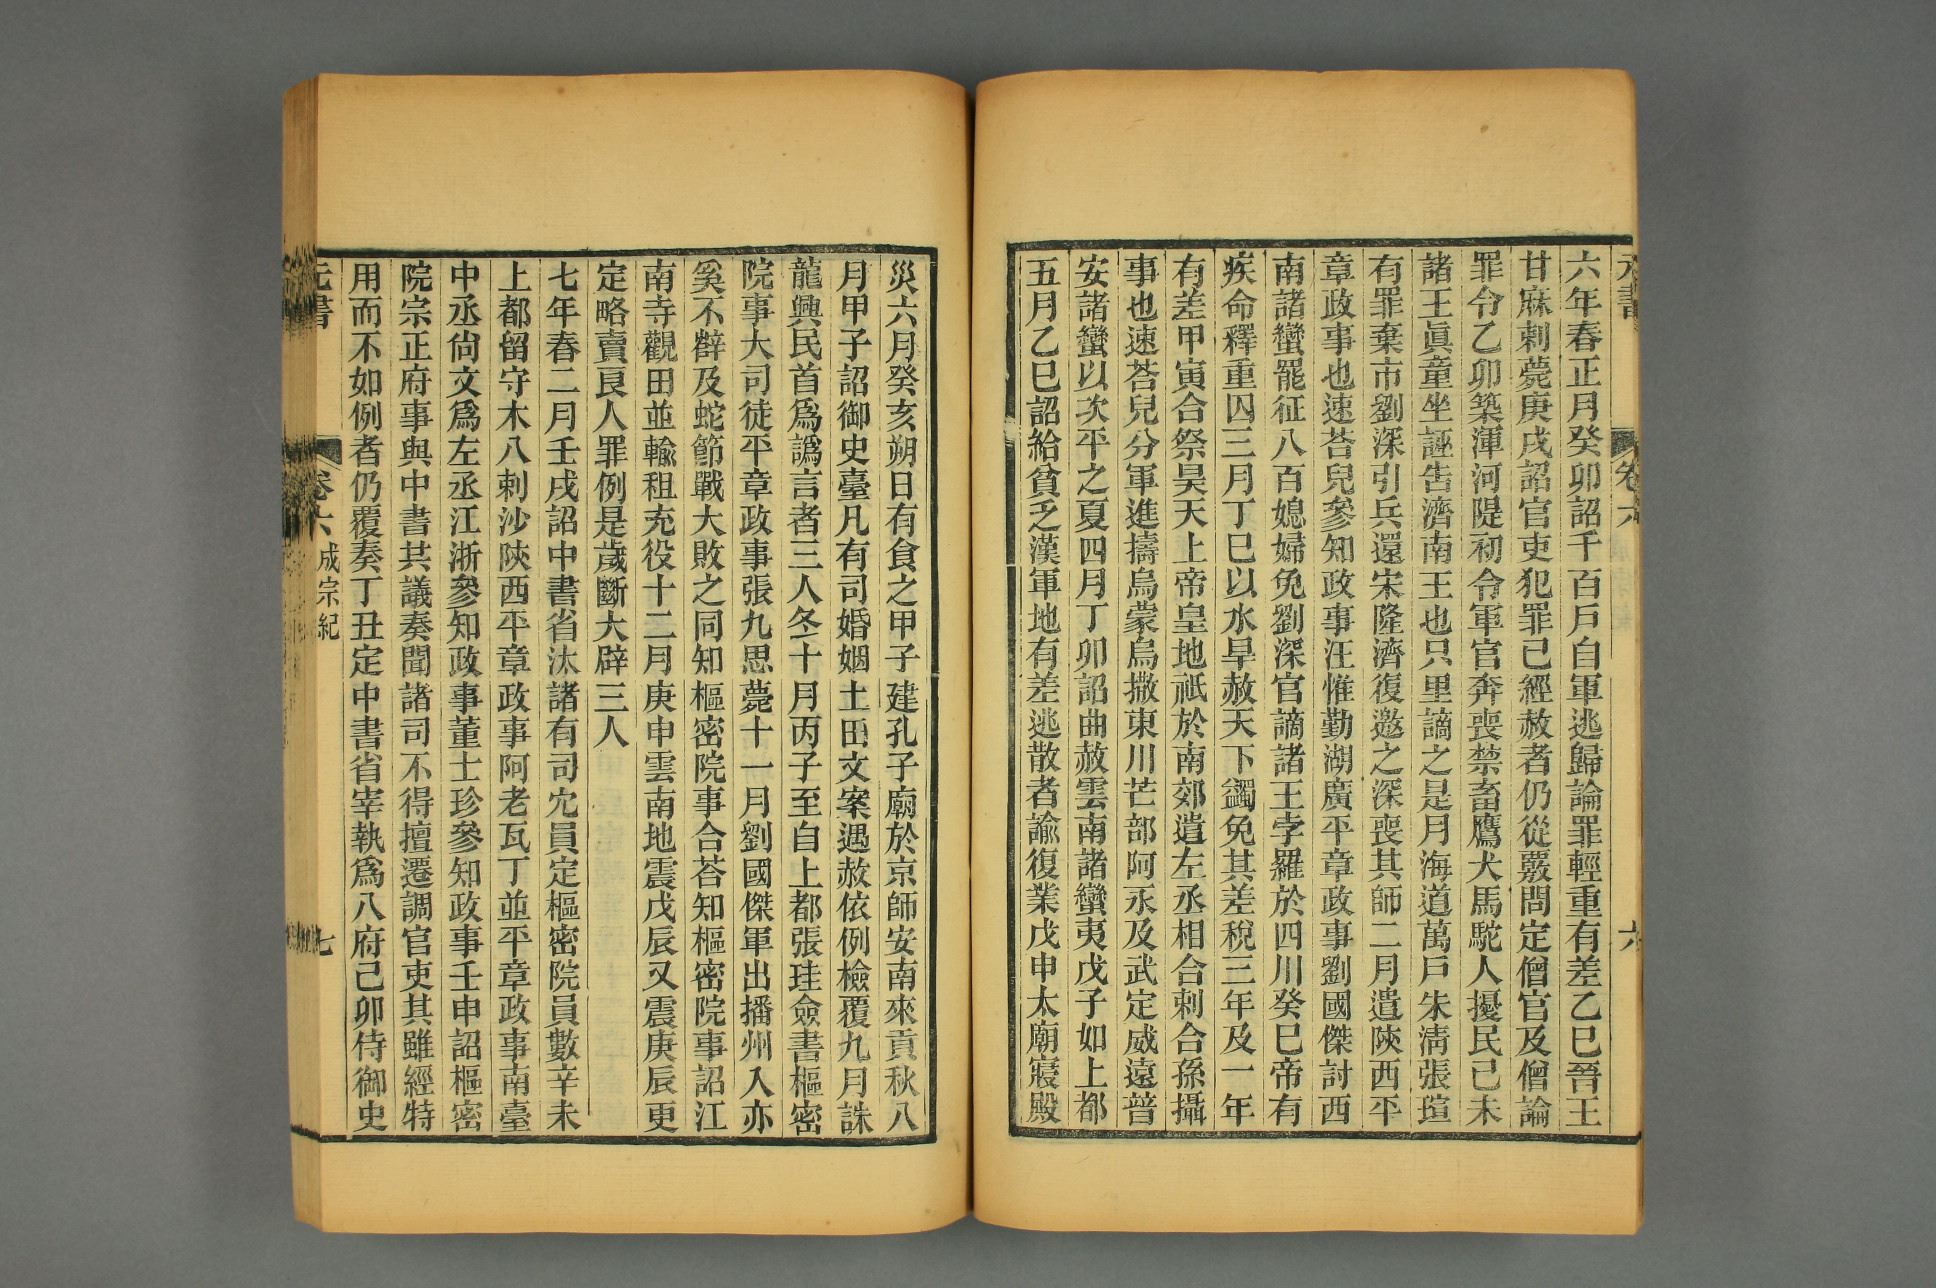 元書
卷六
六
六年春正月癸卯詔千百戶自軍逃歸論罪輕重有差乙巳晉王
甘麻剌薨庚戌詔官吏犯罪已經赦者仍從覈問定僧官及僧論
罪令乙卯築渾河隄初令軍官奔喪禁畜鷹犬馬駝人擾民己未
諸王眞童坐誣吿濟南王也只里謫之是月海道萬戶朱淸張瑄
有罪棄市劉深引兵還宋隆濟復邀之深喪其師二月遣陝西平
章政事也速荅兒參知政事汪惟勤湖廣平章政事劉國傑討西
南諸蠻罷征八百媳婦免劉深官謫諸王孛羅於四川癸巳帝有
疾命釋重囚三月丁巳以水旱赦天下蠲免其差稅三年及一年
有差甲寅合祭昊天上帝皇地祇於南郊遣左丞相合剌合孫攝
事也速荅兒分軍進擣烏蒙烏撒東川芒部阿永及武定威遠普
安諸蠻以次平之夏四月丁卯詔曲赦雲南諸蠻夷戊子如上都
五月乙巳詔給貧乏漢軍地有差逃散者諭復業戊申太廟寢殿
災六月癸亥朔日有食之甲子建孔子廟於京師安南來貢秋八
月甲子詔御史臺凡有司婚姻土田文案遇赦依例檢覆九月誅
龍興民首爲譌言者三人冬十月丙子至自上都張珪僉書樞密
院事大司徒平章政事張九思薨十一月劉國傑軍出播州入亦
奚不辥及蛇節戰大敗之同知樞密院事合荅知樞密院事詔江
南寺觀田並輸租充役十二月庚申雲南地震戊辰又震庚辰更
定略賣良人罪例是歲斷大辟三人
七年春二月壬戌詔中書省汰諸有司冗員定樞密院員數辛未
上都留守木八剌沙陝西平章政事阿老瓦丁並平章政事南臺
中丞尙文爲左丞江浙參知政事董士珍參知政事壬申詔樞密
院宗正府事與中書共議奏聞諸司不得擅遷調官吏其雖經特
用而不如例者仍覆奏丁丑定中書省宰執爲八府己卯侍御史
元書
卷六
成宗紀
七